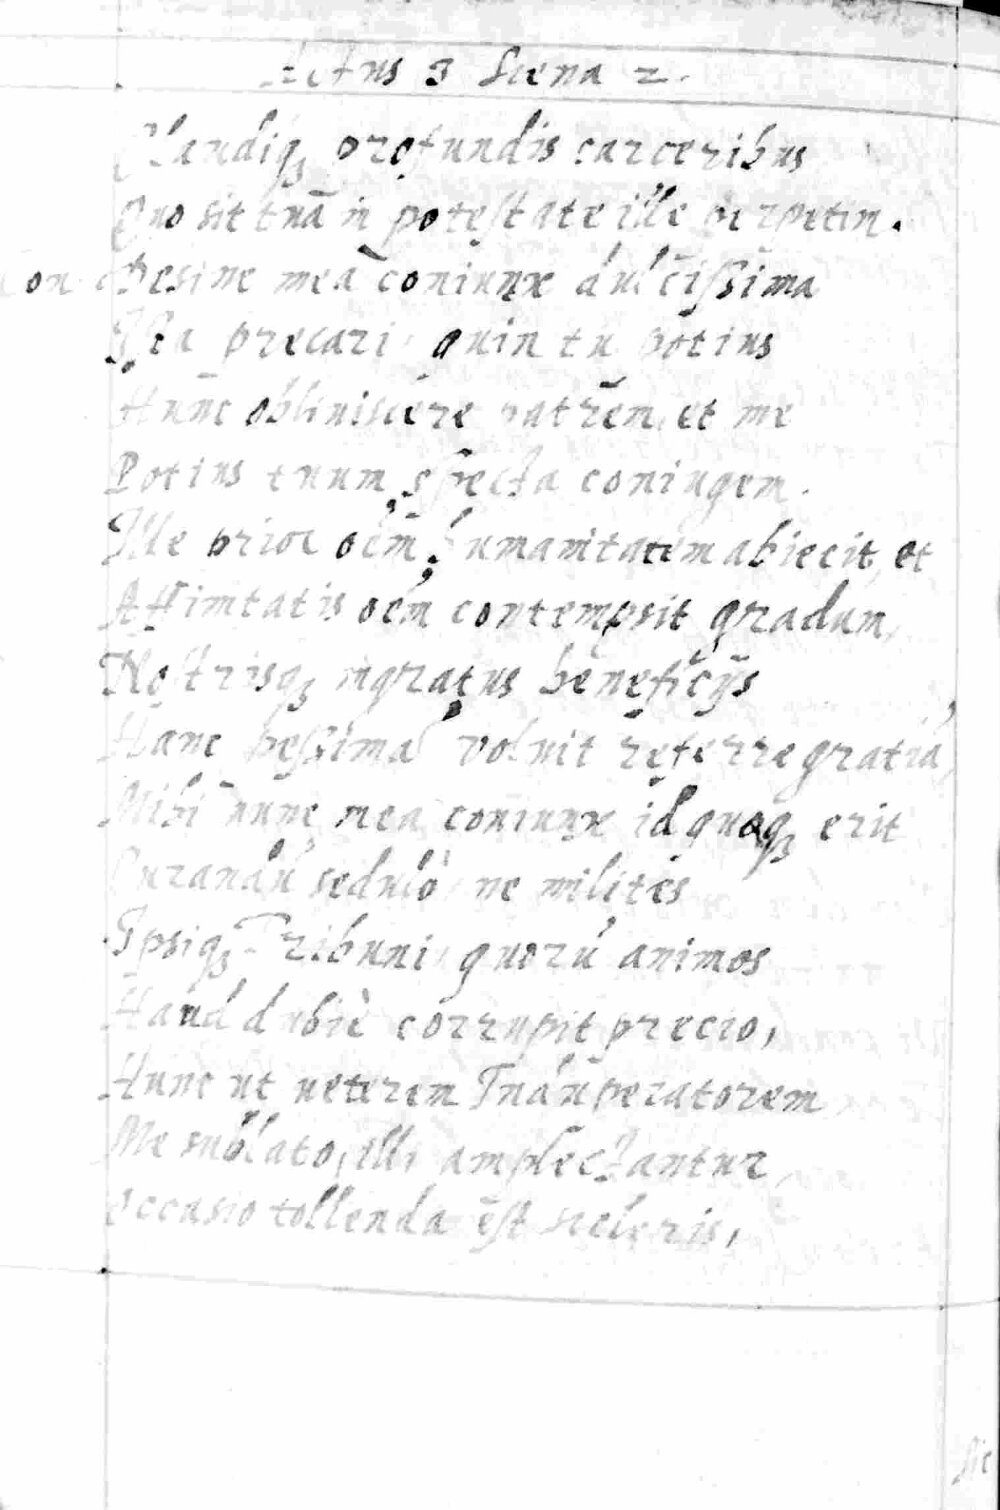 Actus 3 Scena 2.
Claudiq₃ profundis carceribus
Quo sit tuā in potestate ille perpetim.
Con. Desine mea coniunx dulcissima
Ista precari, quin tu potius
Hunc obliuiscere patrem, et me
Potius tuum specta coniugem.
Ille prior oēm humanitatem abiecit, et
Affinitatis oēm contempsit gradum,
Nostrisq₃ ingratus beneficijs
Hanc pessimā voluit referre gratiā,
Mihi nunc mea coniunx id quoq₃ erit
Curandū sedulò, ne milites
Ipsiq₃ Tribuni, quorū animos
Haud dubiè corrupit precio,
Hunc ut ueterem Imperatorem
Me sublato, illi amplectantur,
Occasio tollenda est sceleris,
Sic